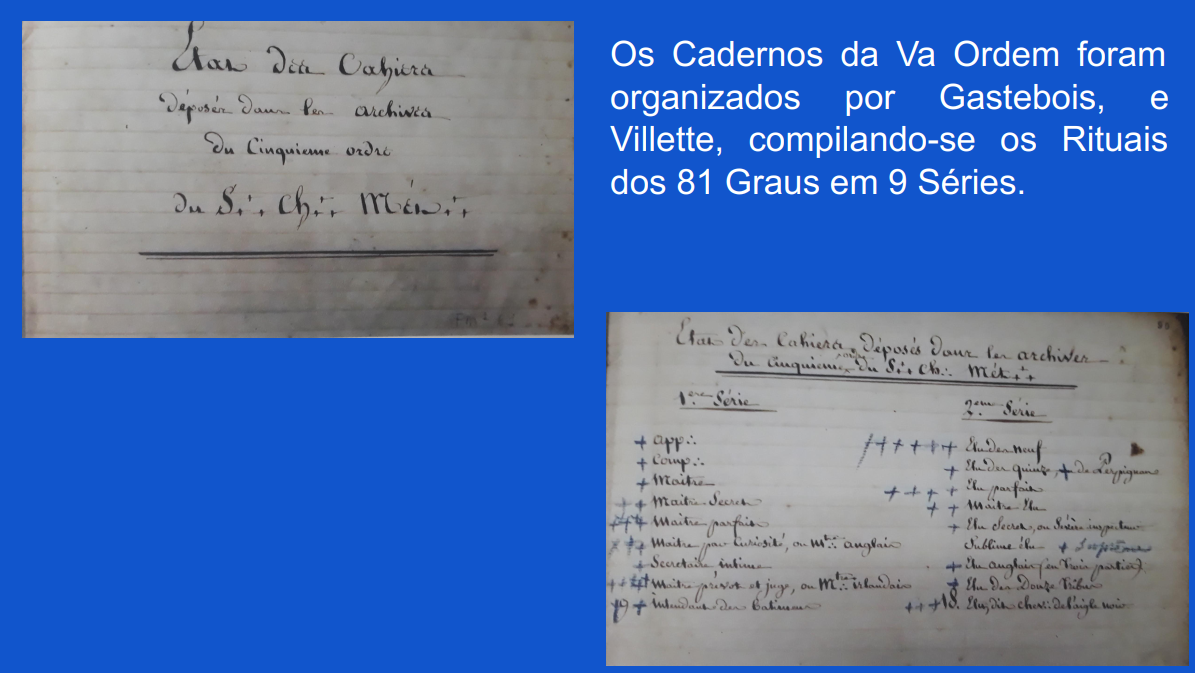 Etat des Cahiers
déposés dans les archives
du Cinquieme ordre
du S∴ Ch∴ Mét∴
Os Cadernos da Va Ordem foram
organizados por Gastebois, e
Villette, compilando-se os Rituais
dos 81 Graus em 9 Séries.
Etat des Cahiers déposés dans les archives
du Cinquieme ordre du S∴ Ch∴ Mét∴
1ere Série
+ App∴
+ Comp∴
+ Maitre
++ Maitre Secret
Maitre parfait
Maitre par Curiosité, ou Mtre∴ anglais
+ Secretaire intime
Maitre prévot et juge, ou Mtre∴ islandais
9 + Intendant des Batimens
2eme Série
Elu des neuf
+ Elu des quinze, + de Perpignan
++++ Elu parfait
++ Maitre Elu
+ Elu Secret, ou Sévère inspecteur
Sublime élu + Suprême
+ Elu anglais (en trois parties)
+ Elu des Douze Tribus
+++18. Elu, dit chev∴ de l'aigle noir